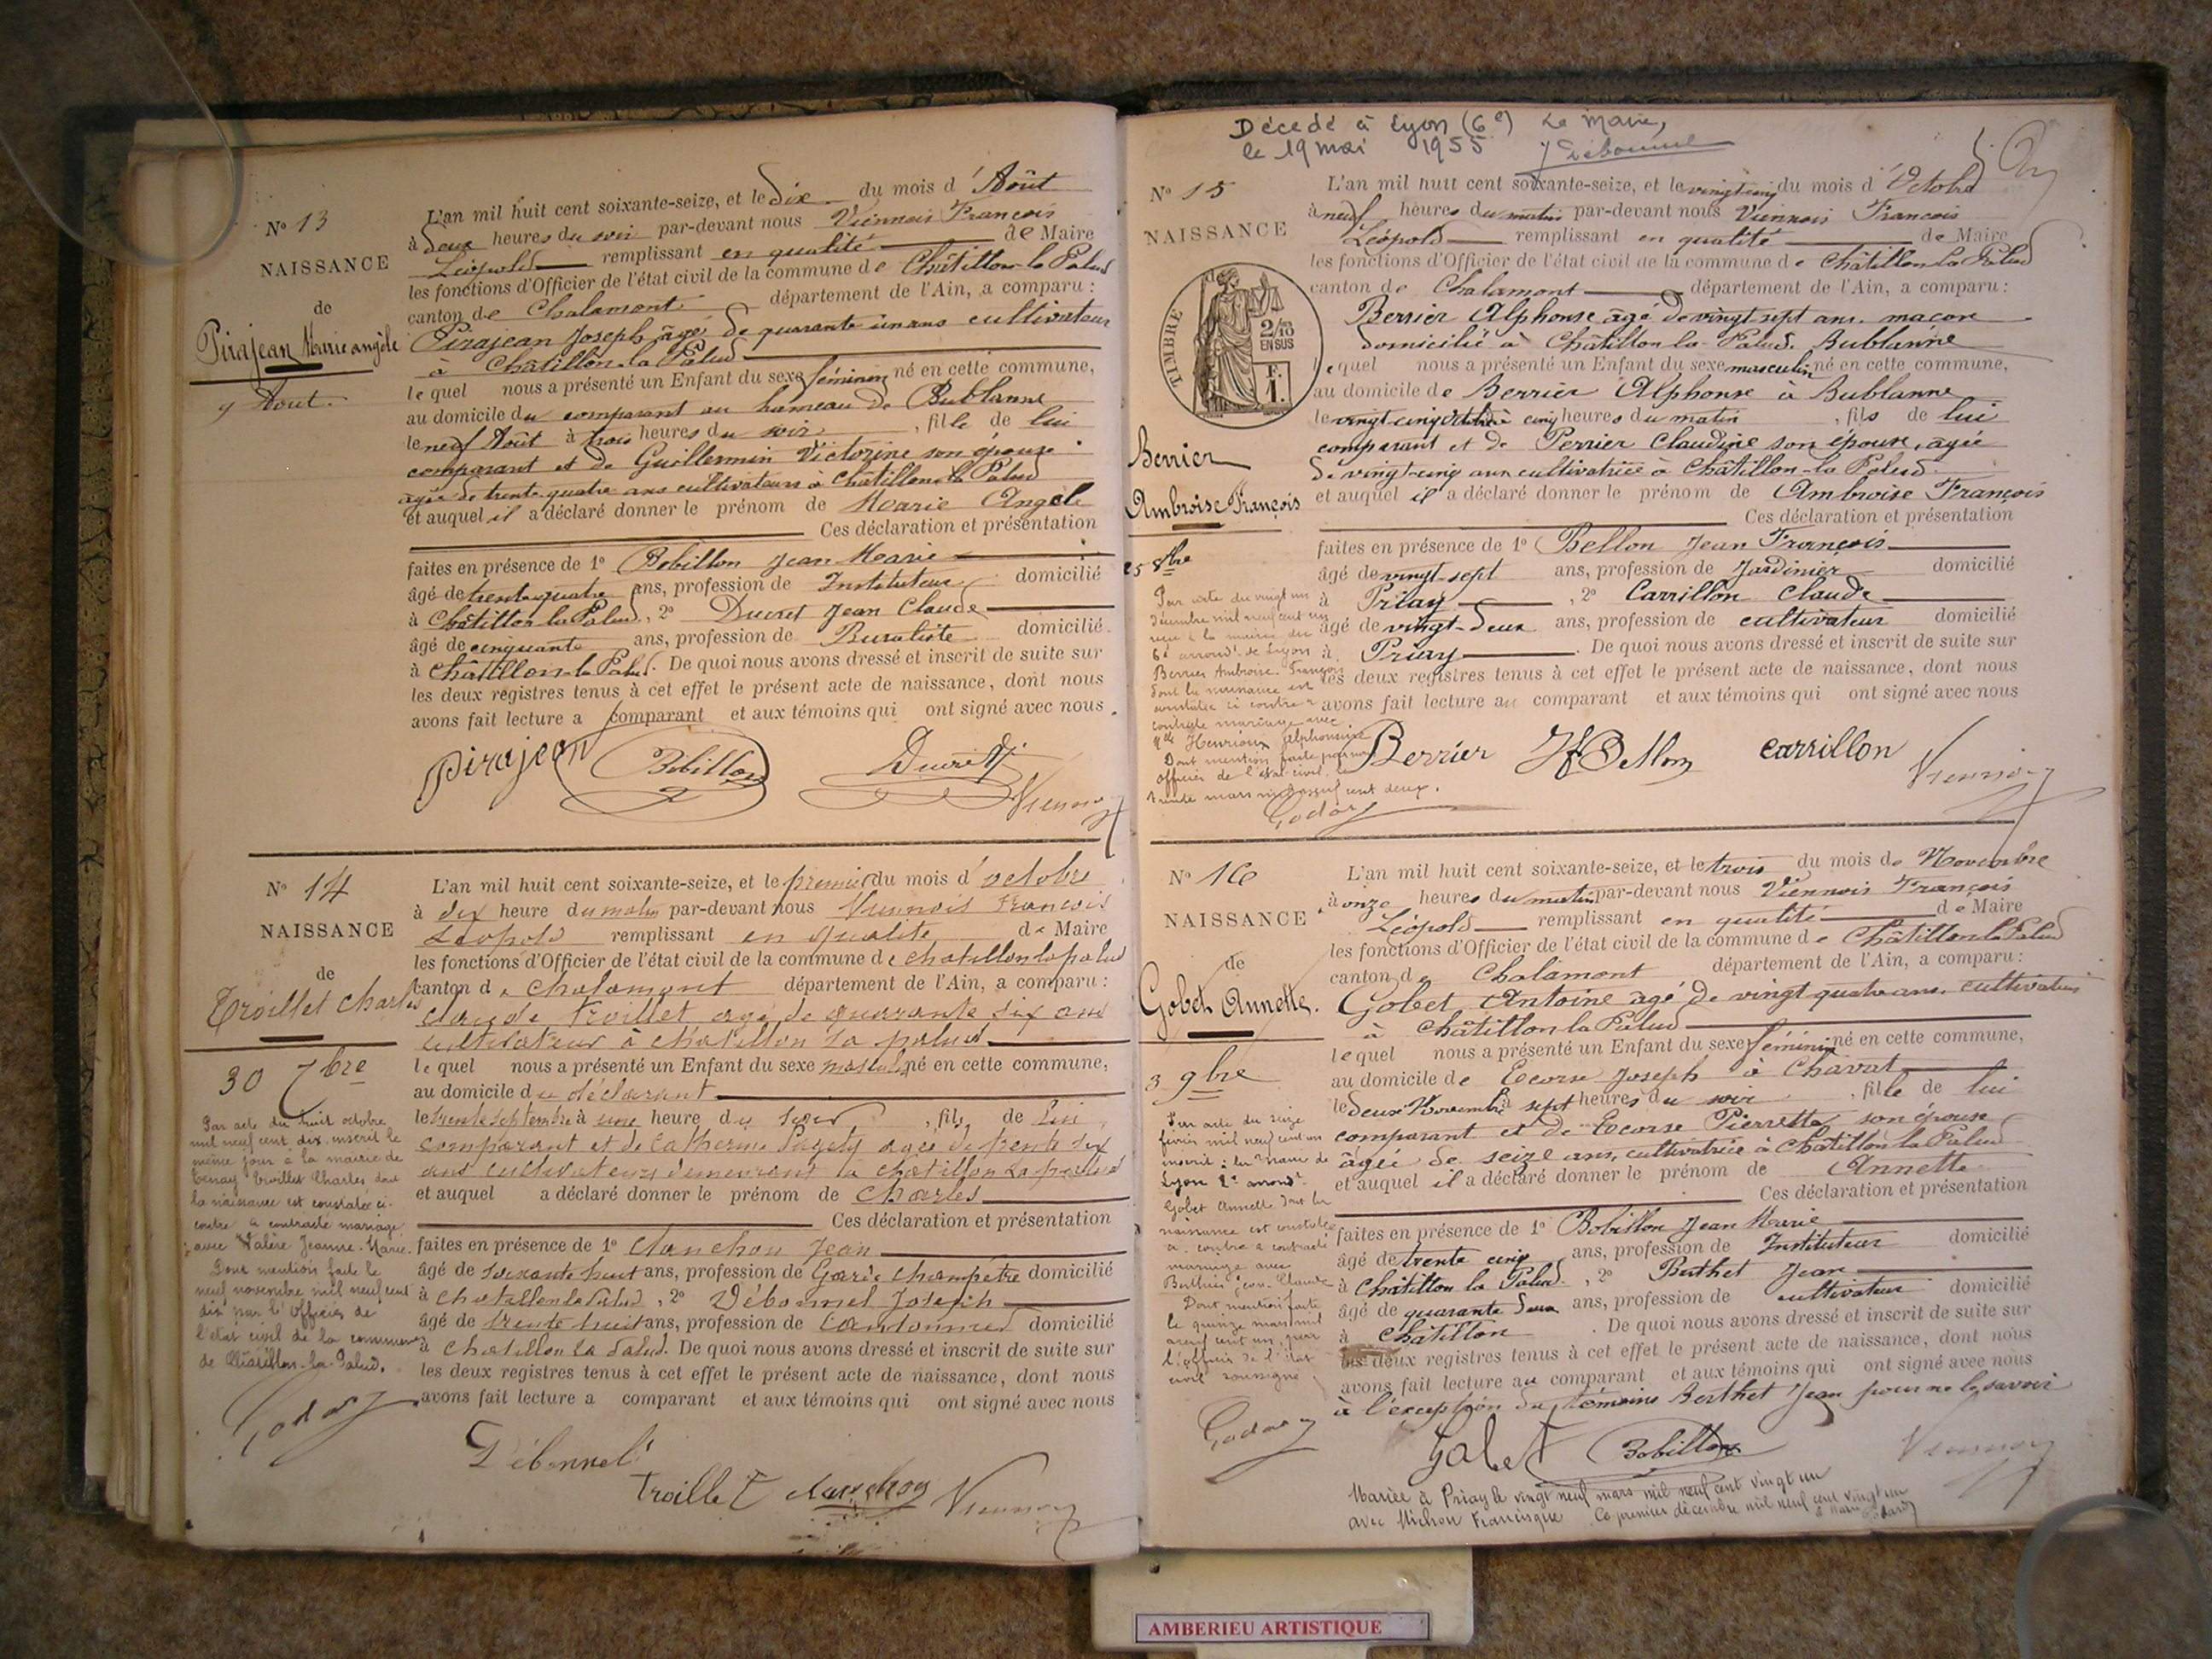 N° 13
NAISSANCE
de
Pirajean Marie angèle
9 Aout.
L'an mil huit cent soixante-seize, et le dix du mois d'Août
à deux heures du soir par-devant nous Viennois François
Léopold remplissant en qualité de Maire
les fonctions d'Officier de l'état civil de la commune de Châtillon-la Palud
canton de Chalamont département de l'Ain, a comparu :
Pirajean Joseph âgé de quarante un ans cultivateur
à Châtillon-la Palud
lequel nous a présenté un Enfant du sexe féminin né en cette commune,
au domicile du comparant au hameau de Bublanne
le neuf Août à trois heures du soir, fille de lui
comparant et de Guillermin Victorine son épouse
agée de trente quatre ans cultivateurs à Châtillon la Palud
et auquel il a déclaré donner le prénom de Marie Angele
Ces déclaration et présentation
faites en présence de 1° Bobillon Jean Marie
âgé de trente quatre ans, profession de Instituteur domicilié
à Châtillon la Palud, 2° Ducret Jean Claude
âgé de cinquante ans, profession de Buraliste domicilié
à Châtillon-la Palud. De quoi nous avons dressé et inscrit de suite sur
les deux registres tenus à cet effet le présent acte de naissance, dont nous
avons fait lecture a comparant et aux témoins qui ont signé avec nous.
Pirajean Bobillon Ducret
Viennois
N° 14
NAISSANCE
de
Troillet Charles
30 7bre
Par acte du huit octobre
mil neuf cent dix, inscrit le
même jour à la mairie de
Tenay Troillet Charles dont
la naissance est constatée ci-
contre a contracté mariage
avec Valère Jeanne-Marie.
Dont mention faite le
neuf novembre mil neuf cent
dix par l'Officier de
l'état civil de la commune
de Châtillon-la-Palud.
Godard
L'an mil huit cent soixante-seize, et le premier du mois d'octobre
à dix heure du matin par-devant nous Viennois François
Léopold remplissant en qualité de Maire
les fonctions d'Officier de l'état civil de la commune de chatillon la palud
canton de chalamont département de l'Ain, a comparu :
claude Troillet agé de quarante six ans
cultivateur à chatillon la palud
lequel nous a présenté un Enfant du sexe masculin né en cette commune,
au domicile du déclarant
le trente septembre à une heure du soir, fils de lui
comparant et de Catherine agée de trente six
ans cultivateurs demeurant a chatillon la palud
et auquel a déclaré donner le prénom de Charles
Ces déclaration et présentation
faites en présence de 1° clanchon Jean
âgé de soixante huit ans, profession de Garde champetre domicilié
à chatillon la Palud, 2° Débonnel Joseph
âgé de trente huit ans, profession de Cantonnier domicilié
à chatillon la Palud. De quoi nous avons dressé et inscrit de suite sur
les deux registres tenus à cet effet le présent acte de naissance, dont nous
avons fait lecture a comparant et aux témoins qui ont signé avec nous
Débonnel
Troillet clanchon Viennois
Décédé à Lyon (6e) Le Maire,
le 19 mai 1955 Débonnel
N° 15
NAISSANCE
TIMBRE
2/10 EN SUS
F. 1.
Berrier
Ambroise François
25 8bre
Par acte du vingt un
décembre mil neuf cent un
reçu à la mairie du
6e arrondt de Lyon
Berrier Ambroise François
dont la naissance est
constatée ci contre a
contracté mariage avec
Mlle Henrioux Alphonsine
Dont mention faite par nous
officier de l'état-civil le
trente mars mil neuf cent deux.
Godard
L'an mil huit cent soixante-seize, et le vingt cinq du mois d'Octobre
à neuf heures du matin par-devant nous Viennois François
Léopold remplissant en qualité de Maire
les fonctions d'Officier de l'état civil de la commune de Châtillon la Palud
canton de Chalamont département de l'Ain, a comparu :
Berrier Alphonse âgé de vingt sept ans. maçon
domicilié à Châtillon la Palud. Bublanne
lequel nous a présenté un Enfant du sexe masculin né en cette commune,
au domicile de Berrier Alphonse à Bublanne
le vingt-cinq octobre à cinq heures du matin, fils de lui
comparant et de Perrier Claudine son épouse, agée
de vingt-cinq ans cultivatrice à Châtillon-la Palud.
et auquel il a déclaré donner le prénom de Ambroise François
Ces déclaration et présentation
faites en présence de 1° Bellon Jean François
âgé de vingt-sept ans, profession de Jardinier domicilié
à Priay, 2° Carrillon Claude
âgé de vingt-deux ans, profession de cultivateur domicilié
à Priay. De quoi nous avons dressé et inscrit de suite sur
les deux registres tenus à cet effet le présent acte de naissance, dont nous
avons fait lecture au comparant et aux témoins qui ont signé avec nous
Berrier JF Bellon carrillon Viennois
N° 16
NAISSANCE
de
Gobet Annette.
3 9bre
Par acte du seize
février mil neuf cent un
inscrit à la mairie de
Lyon 2e arrondt
Gobet Annette dont la
naissance est constatée
ci contre a contracté
mariage avec
Berthier Jean-Claude
Dont mention faite
le quinze mars mil
neuf cent un, par
l'officier de l'état
civil soussigné
Godard
L'an mil huit cent soixante-seize, et le trois du mois de Novembre
à onze heures du matin par-devant nous Viennois François
Léopold remplissant en qualité de Maire
les fonctions d'Officier de l'état civil de la commune de Châtillon la Palud
canton de Chalamont département de l'Ain, a comparu :
Gobet Antoine agé de vingt quatre ans, cultivateur
à Châtillon la Palud
lequel nous a présenté un Enfant du sexe féminin né en cette commune,
au domicile de Ecorse Joseph à Chavat
le deux Novembre à sept heures du soir, fille de lui
comparant et de Ecorse Pierrette son épouse
âgée de seize ans, cultivatrice à Châtillon la Palud
et auquel il a déclaré donner le prénom de Annette
Ces déclaration et présentation
faites en présence de 1° Bobillon Jean Marie
âgé de trente cinq ans, profession de Instituteur domicilié
à Châtillon la Palud, 2° Berthet Jean
âgé de quarante deux ans, profession de cultivateur domicilié
à Châtillon. De quoi nous avons dressé et inscrit de suite sur
les deux registres tenus à cet effet le présent acte de naissance, dont nous
avons fait lecture au comparant et aux témoins qui ont signé avec nous
à l'exception du témoins Berthet Jean pour ne le savoir
Gobet Bobillon Viennois
Mariée à Priay le vingt neuf mars mil neuf cent vingt un
avec Michon Francisque Ce premier décembre mil neuf cent vingt un
le Maire Godard
AMBERIEU ARTISTIQUE